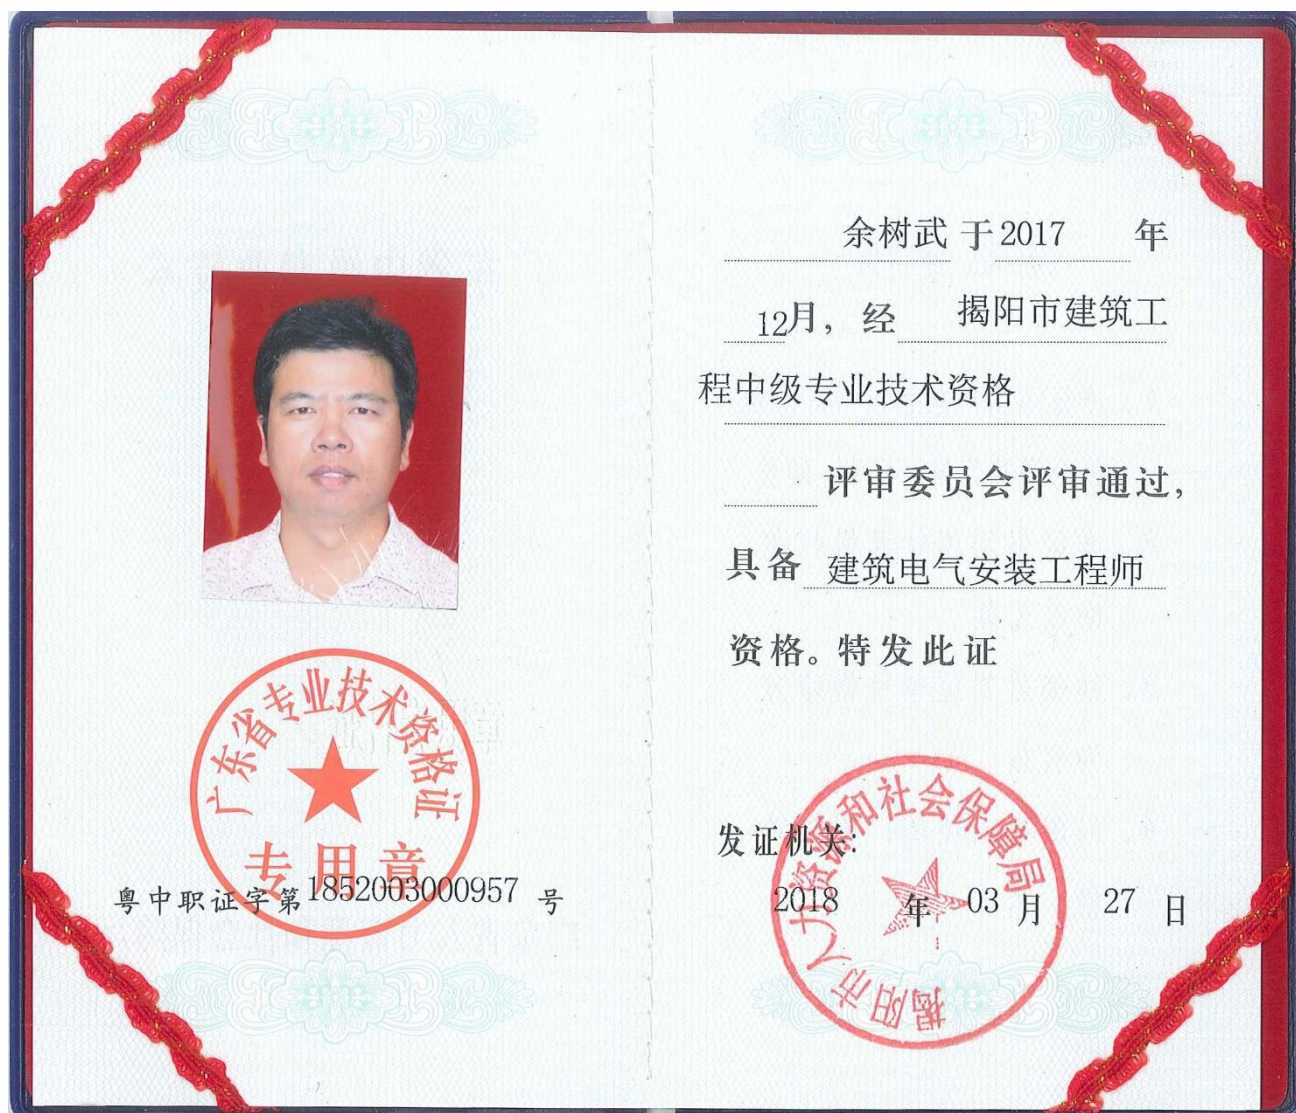 广东省专业技术资格证
专用章
粤中职证字第1852003000957 号
余树武 于2017 年
12月，经 揭阳市建筑工
程中级专业技术资格
评审委员会评审通过，
具备 建筑电气安装工程师
资格。特发此证
发证机关：
揭阳市人力资源和社会保障局
2018 年 03 月 27 日